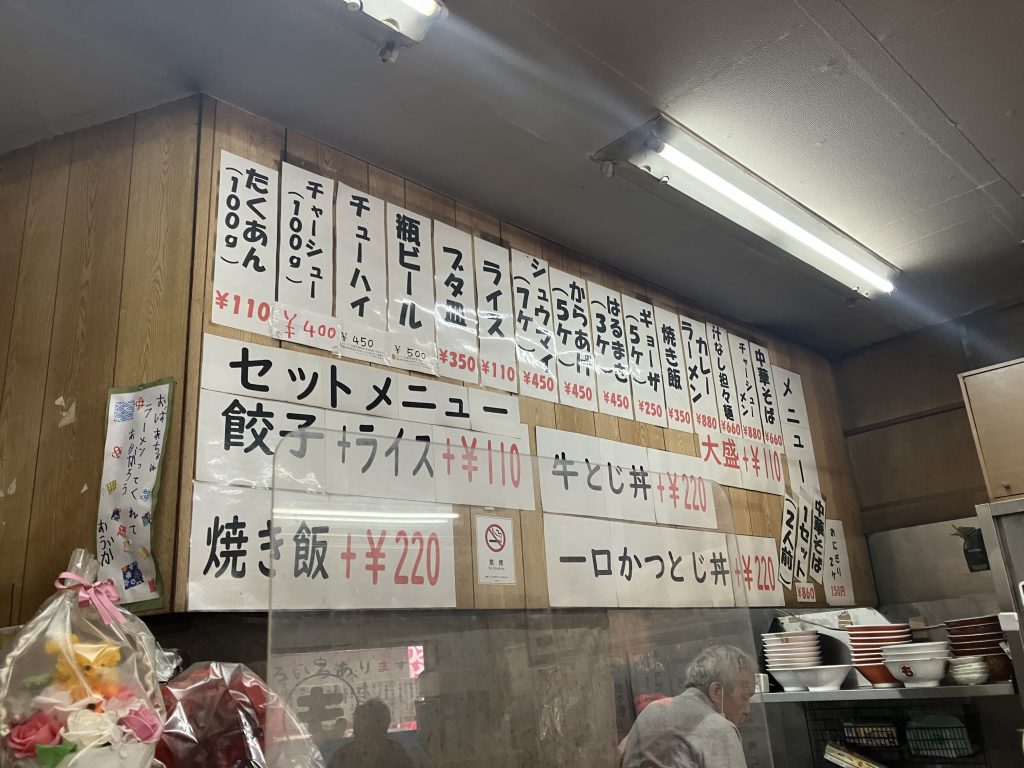 メニュー
中華そば
¥660
チャーシュー
メン
¥880
汁なし担々麺
¥660
カレー
ラーメン
¥880
大盛+¥110
焼き飯
¥350
ギョーザ
(5ケ)
¥250
はるまき
(3ケ)
¥450
からあげ
(5ケ)
¥450
シュウマイ
(7ケ)
¥450
ライス
¥110
ブタ皿
¥350
瓶ビール
¥500
チューハイ
¥450
チャーシュー
(100g)
¥400
たくあん
(100g)
¥110
セットメニュー
餃子+ライス+¥110
焼き飯+¥220
牛とじ丼+¥220
一口かつとじ丼+¥220
中華そば
1セット
(2人前)
¥860
おにぎり
2ケ
150円
禁煙
おばあちゃん
ラーメンつくってくれて
ありがとう